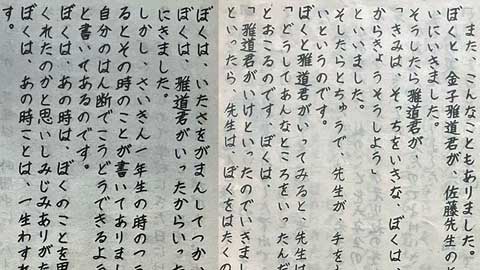 また、こんなこともありました。
ぼくと、金子雅道君が、佐藤先生の
いにいきました。
そうしたら雅道君が、
「きみは、そっちをいきな、ぼくは
からきょうそうしよう」
といいました。
そしたらとちゅうで、先生が、手を
いというのです。
ぼくと雅道君がいってみると、先生は
「どうしてあんなところをいったんだ
とおこるのです。ぼくは、
「雅道君がいけといったのでいきまし
といったら、先生は、ぼくをはたくの
ぼくは、いたさをがまんしてつか
ぼくは、雅道君がいったからいった
にきました。
しかし、さいきん一年生の時のつう
るとその時のことが書いてありまし
自分のはん断でこうどうできるよう
と書いてあるのです。
ぼくは、あの時は、ぼくのことを思
くれたのかと思いしみじみありがた
ぼくは、あの時ことは、一生わすれ
す。